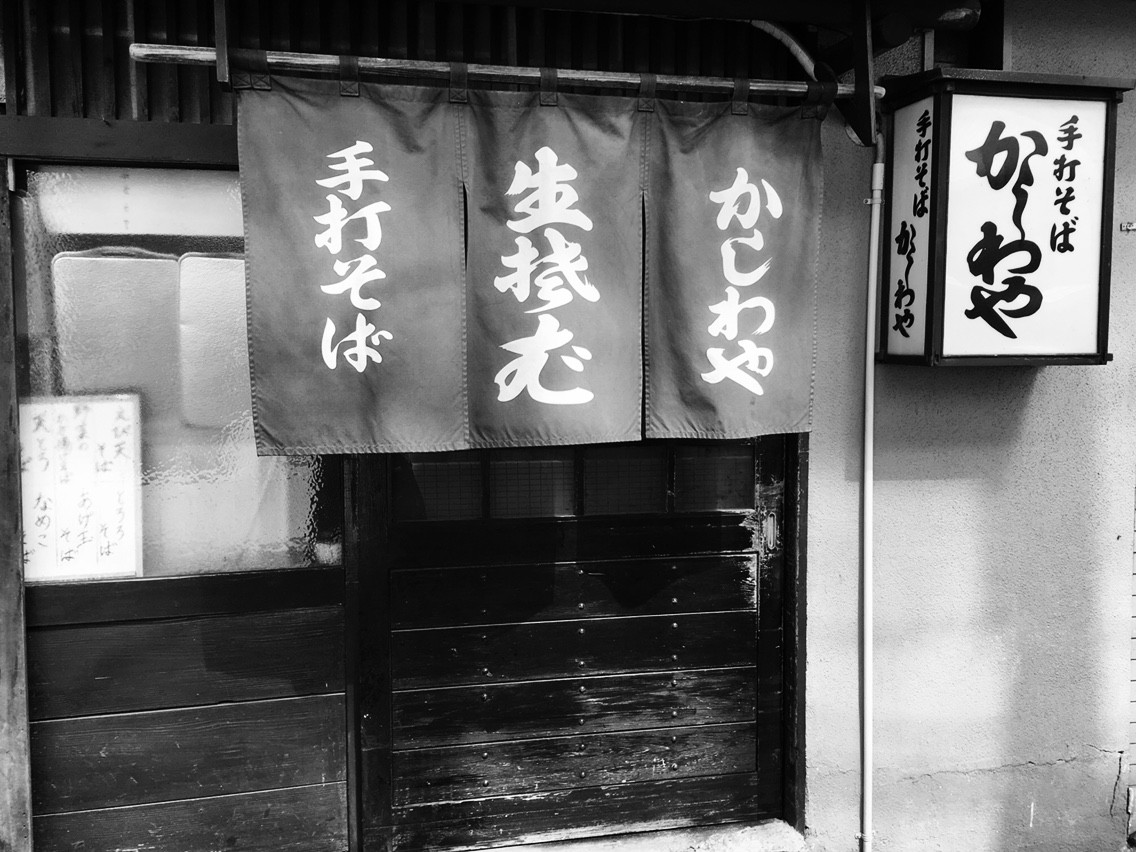 かしわや
生そば
手打そば
手打そば
かしわや
手打そば かしわや
えび天
そば
とろろ
そば
あげ玉
そば
天とろ
なめこ